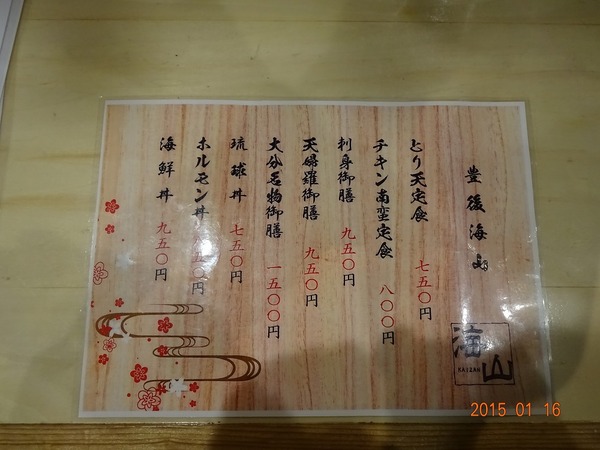 豊後海山
とり天定食 七五〇円
チキン南蛮定食 八〇〇円
刺身御膳 九五〇円
天婦羅御膳 九五〇円
大分名物御膳 一五〇〇円
琉球丼 七五〇円
ホルモン丼 五〇円
海鮮丼 九五〇円
海山
KAIZAN
2015 01 16